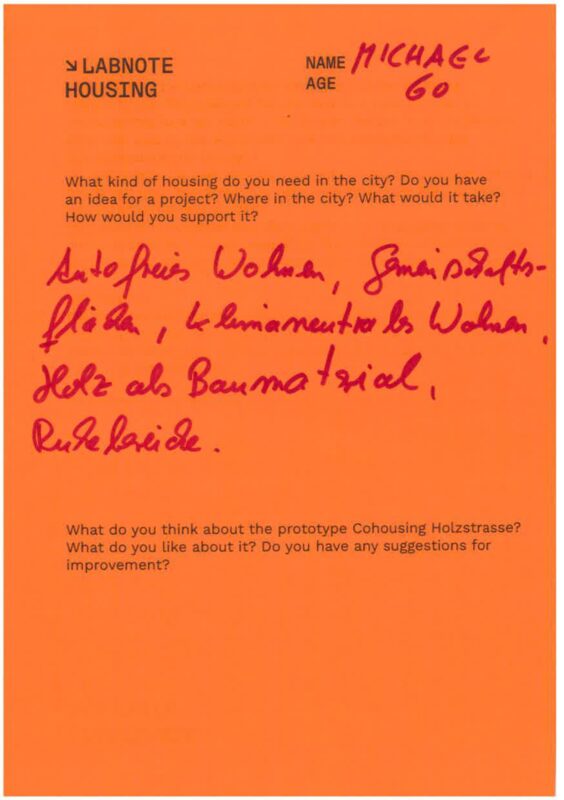 ↘ LABNOTE
HOUSING
NAME MICHAEL
AGE 60
What kind of housing do you need in the city? Do you have
an idea for a project? Where in the city? What would it take?
How would you support it?
Autofreies Wohnen, Gemeinschafts-
flächen, klimaneutrales Wohnen,
Holz als Baumaterial,
Ruhebereiche.
What do you think about the prototype Cohousing Holzstrasse?
What do you like about it? Do you have any suggestions for
improvement?